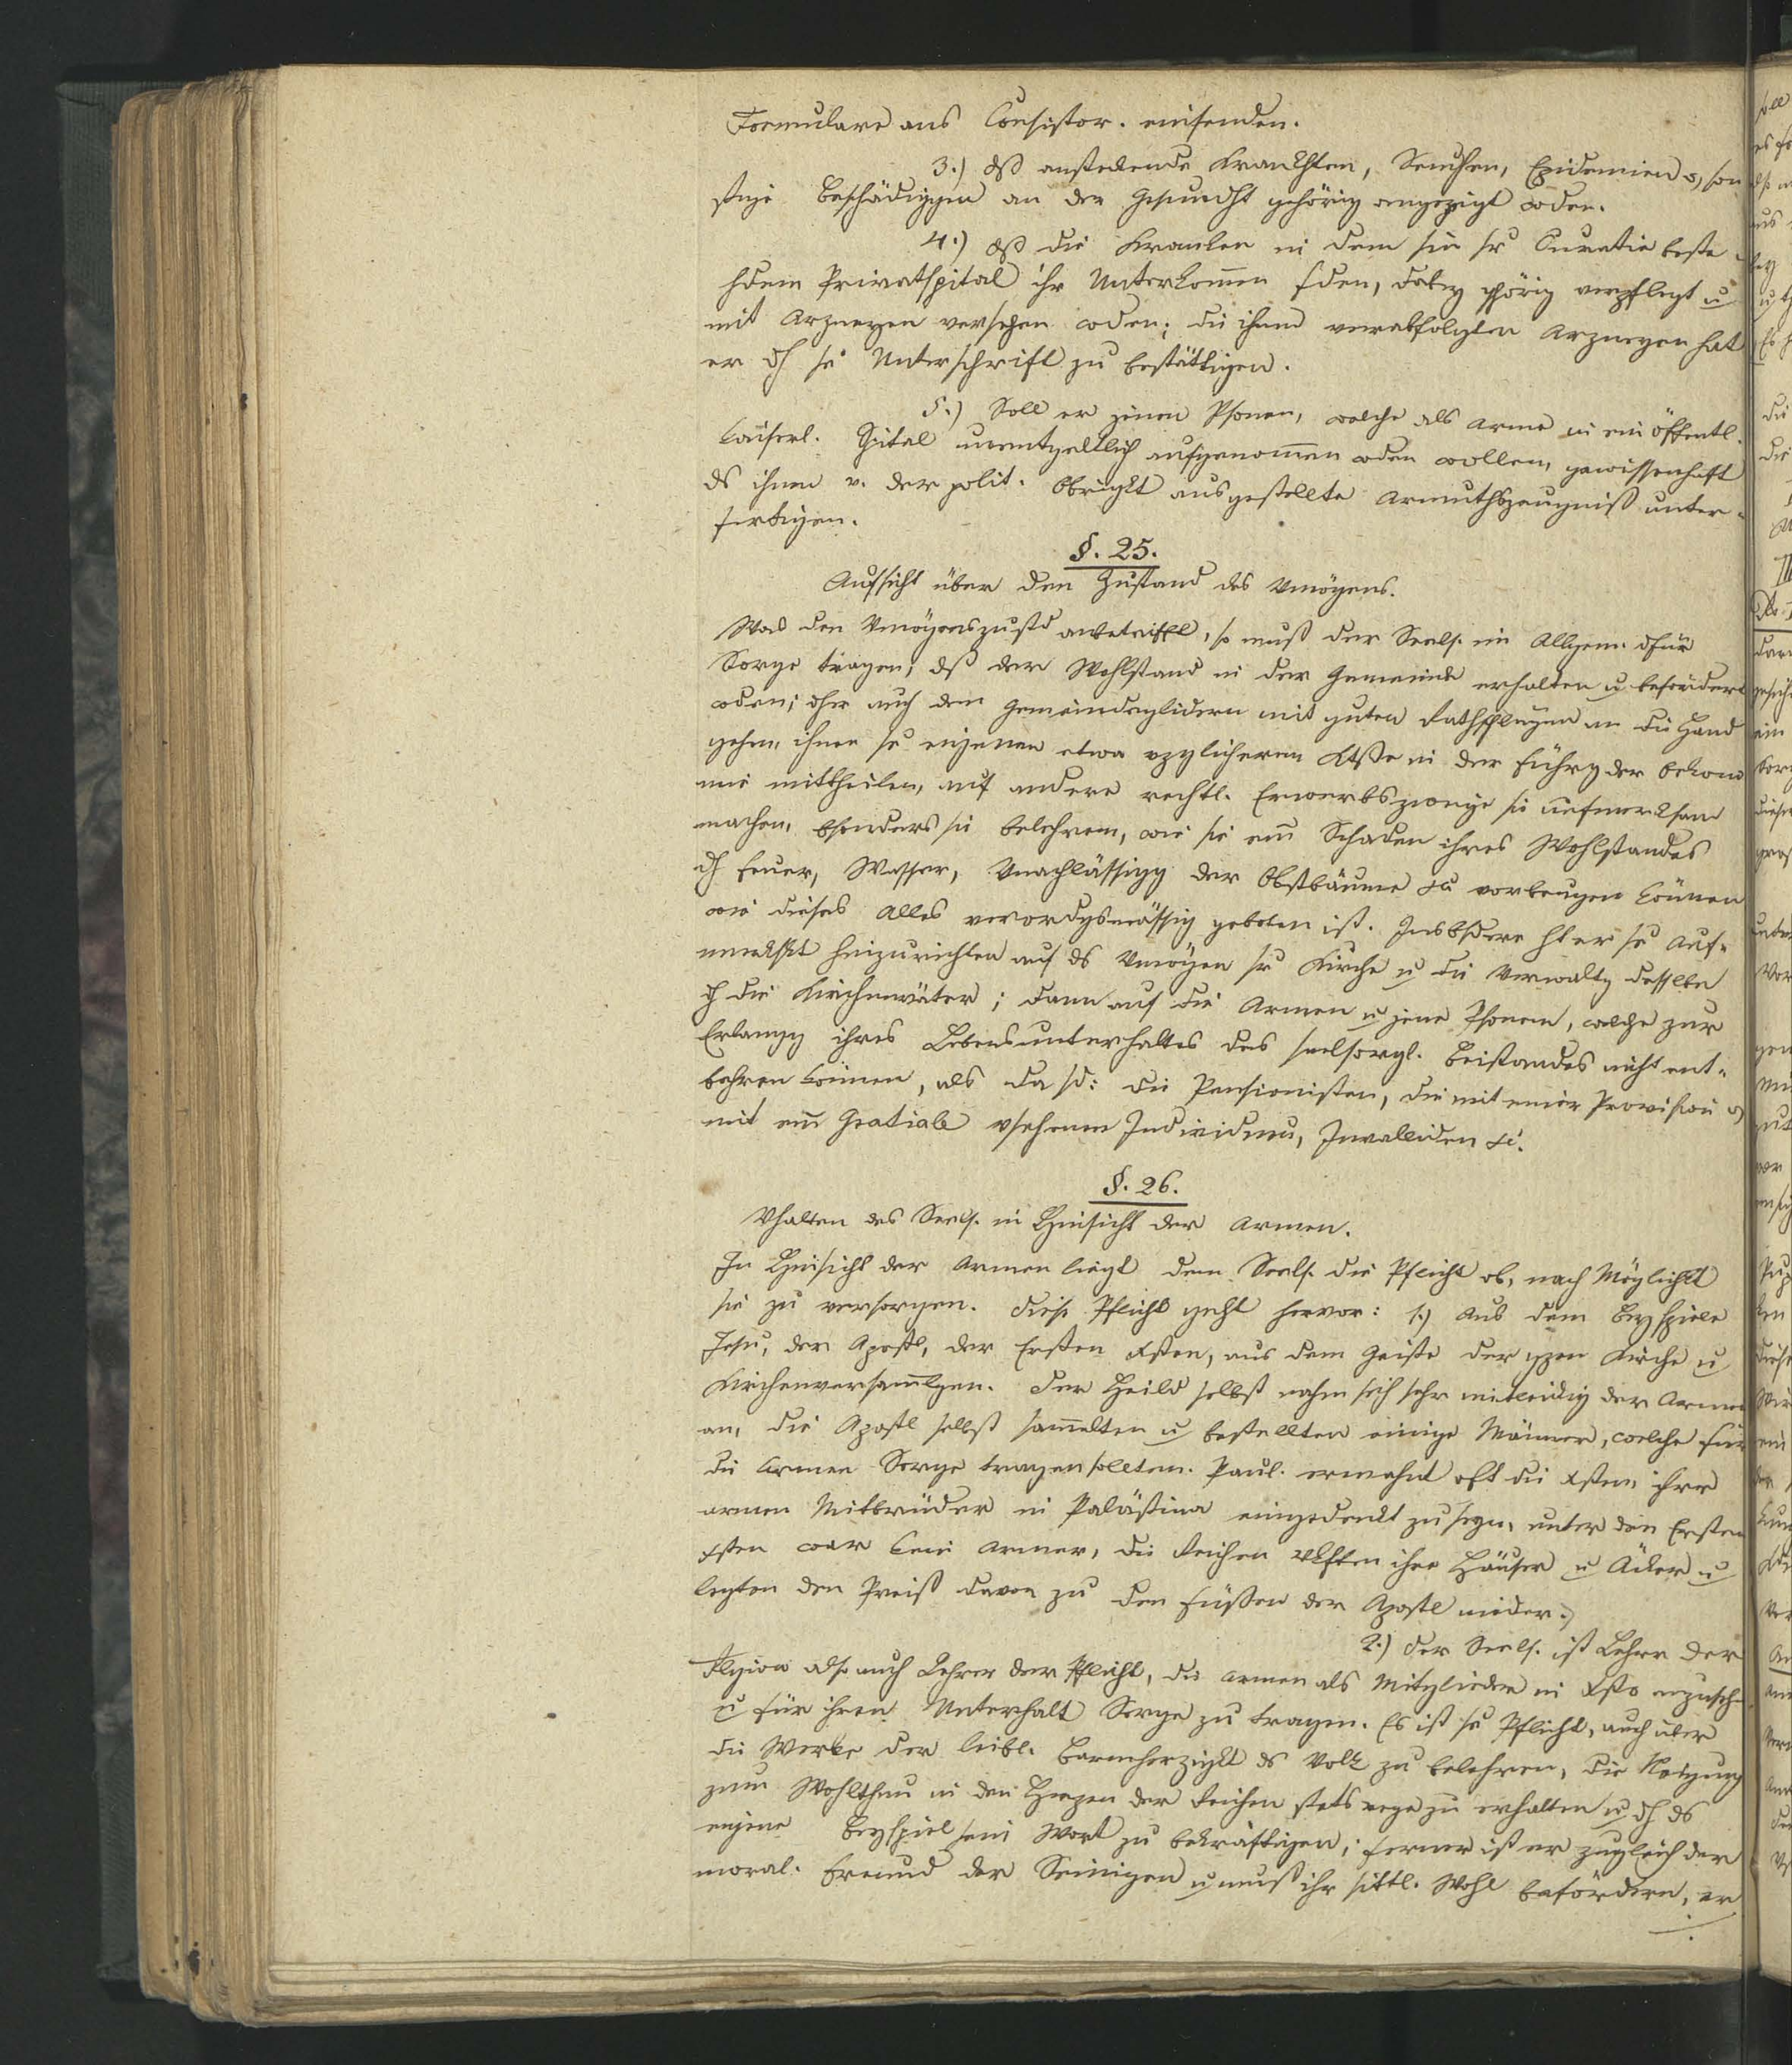 Formulare ans Consistor. einsenden.
3.) dß ansteckende Krankhten, Seuchen, Epidemien o, son
stige Beschädiggen an der Gesundht gehörig angezeigt wden.
4.) dß die Kranken in dem für sr Curatie beste-
hdem Privatspital ihr Unterkomen fden, dabey ghörig verpflegt u
mit Arzneyen versehen wden; die ihnen verabfolgten Arzneyen hat
er dh se Unterschrift zu bestättigen.
5.) Soll er jenen Psonen, welche als Arme in ein öffentl.
kaiserl. Spital unentgeltlich aufgenomen wden wollen, gewissenhaft
ds ihnen v. der polit. Obrigkt ausgestellte Armuthszeugniß unter-
fertigen.
§. 25.
Aufsicht über den Zustand des Vmögens.
Was den Vmögenszustd anbetrifft, so muß der Seels. im Allgem. dfür
Sorge tragen, dß der Wohlstand in der Gemeinde erhalten u befördert
wden; dher auch den Gemeindegliedern mit guten Rathschlägen an die Hand
gehen, ihnen se eigenen etwa vzglicheren Ktße in der Führg der Oekono
mie mittheilen, auf andere rechtl. Erwerbszweige sie aufmerksam
machen, bsonders sie belehren, wie sie em Schaden ihres Wohlstandes
dh Feuer, Wasser, Vnachlässigg der Obstbäume &c vorbeugen können
wie dieses Alles verordgsmässig geboten ist. Insbsdere ht er se Auf-
merkskt hinzurichten auf ds Vmögen sr Kirche u die Verwaltg desselbn
dh die Kirchenväter; dann auf die Armen u jene Psonen, welche zur
Erlangg ihres Lebensunterhaltes des seelsorgl. Beistandes nicht ent-
behren können, als da sd: die Pensionisten, die mit einer Provision o
mit em Gratiale vsehenen Individuen, Invaliden &c.
§. 26.
Vhalten des Seels. in Hinsicht der Armen.
In Hinsicht der Armen liegt dem Seels. die Pflicht ob, nach Möglichkt
sie zu versorgen. Diese Pflicht geht hervor: 1.) Aus dem Beyspiele
Jesu, der Apostl, der Ersten Xsten, aus dem Geiste der gzen Kirche u
Kirchenversamlgen. Der Heild selbst nahm sich sehr mitleidig der Armen
an, die Apostl selbst samelten u bestellten einige Männer, welche für
die Armen Sorge tragen sollten. Paul. ermahnt oft die Xsten, ihrer
armen Mitbrüder in Palästina eingedenkt zu seyn, unter den Ersten
Xsten war kein Armer, die Reichen vkften ihre Häuser u Äcker u
legten den Preiß davon zu den Füßen der Apostl nieder.
2.) Der Seels. ist Lehrer der
Rlgion also auch Lehrer der Pflicht, die Armen als Mitglieder in Xsto anzuseh-
u für ihren Unterhalt Sorge zu tragen. Es ist se Pflicht, auch über
die Werke der leibl. Barmherzigkt ds Volk zu belehren, die Neigung
zum Wohlthun in den Herzen der Reichen stets rege zu erhalten u dh ds
eigene Beyspiel sein Wort zu bekräftigen; ferner ist er zugleich der
moral. Freund der Seinigen u muß ihr sittl. Wohl befördern, er